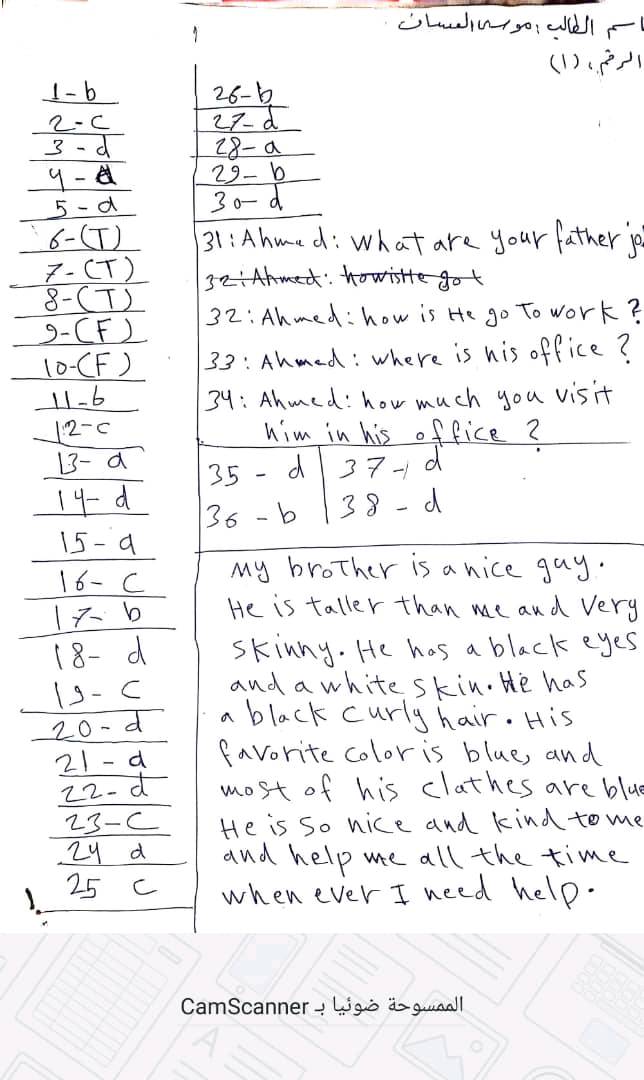 اسم الطالب : موسى العسان
الرقم : (١)
1-b
2-c
3-d
4-a
5-d
6-(T)
7-(T)
8-(T)
9-(F)
10-(F)
11-b
12-c
13-a
14-d
15-a
16-c
17-b
18-d
19-c
20-d
21-d
22-d
23-C
24 d
25 C
26-b
27-d
28-a
29-b
30-d
31: Ahmed: what are your father jo
32: Ahmed: howistte got
32: Ahmed: how is He go To work ?
33: Ahmed: where is his office ?
34: Ahmed: how much you visit
him in his office ?
35 - d 37 - d
36 - b 38 - d
My broTher is a nice guy.
He is taller than me and very
skinny. He has a black eyes
and a white skin. He has
a black curly hair. His
favorite color is blue, and
most of his clathes are blue
He is so nice and kind to me
and help me all the time
when ever I need help.
الممسوحة ضوئيا بـ CamScanner